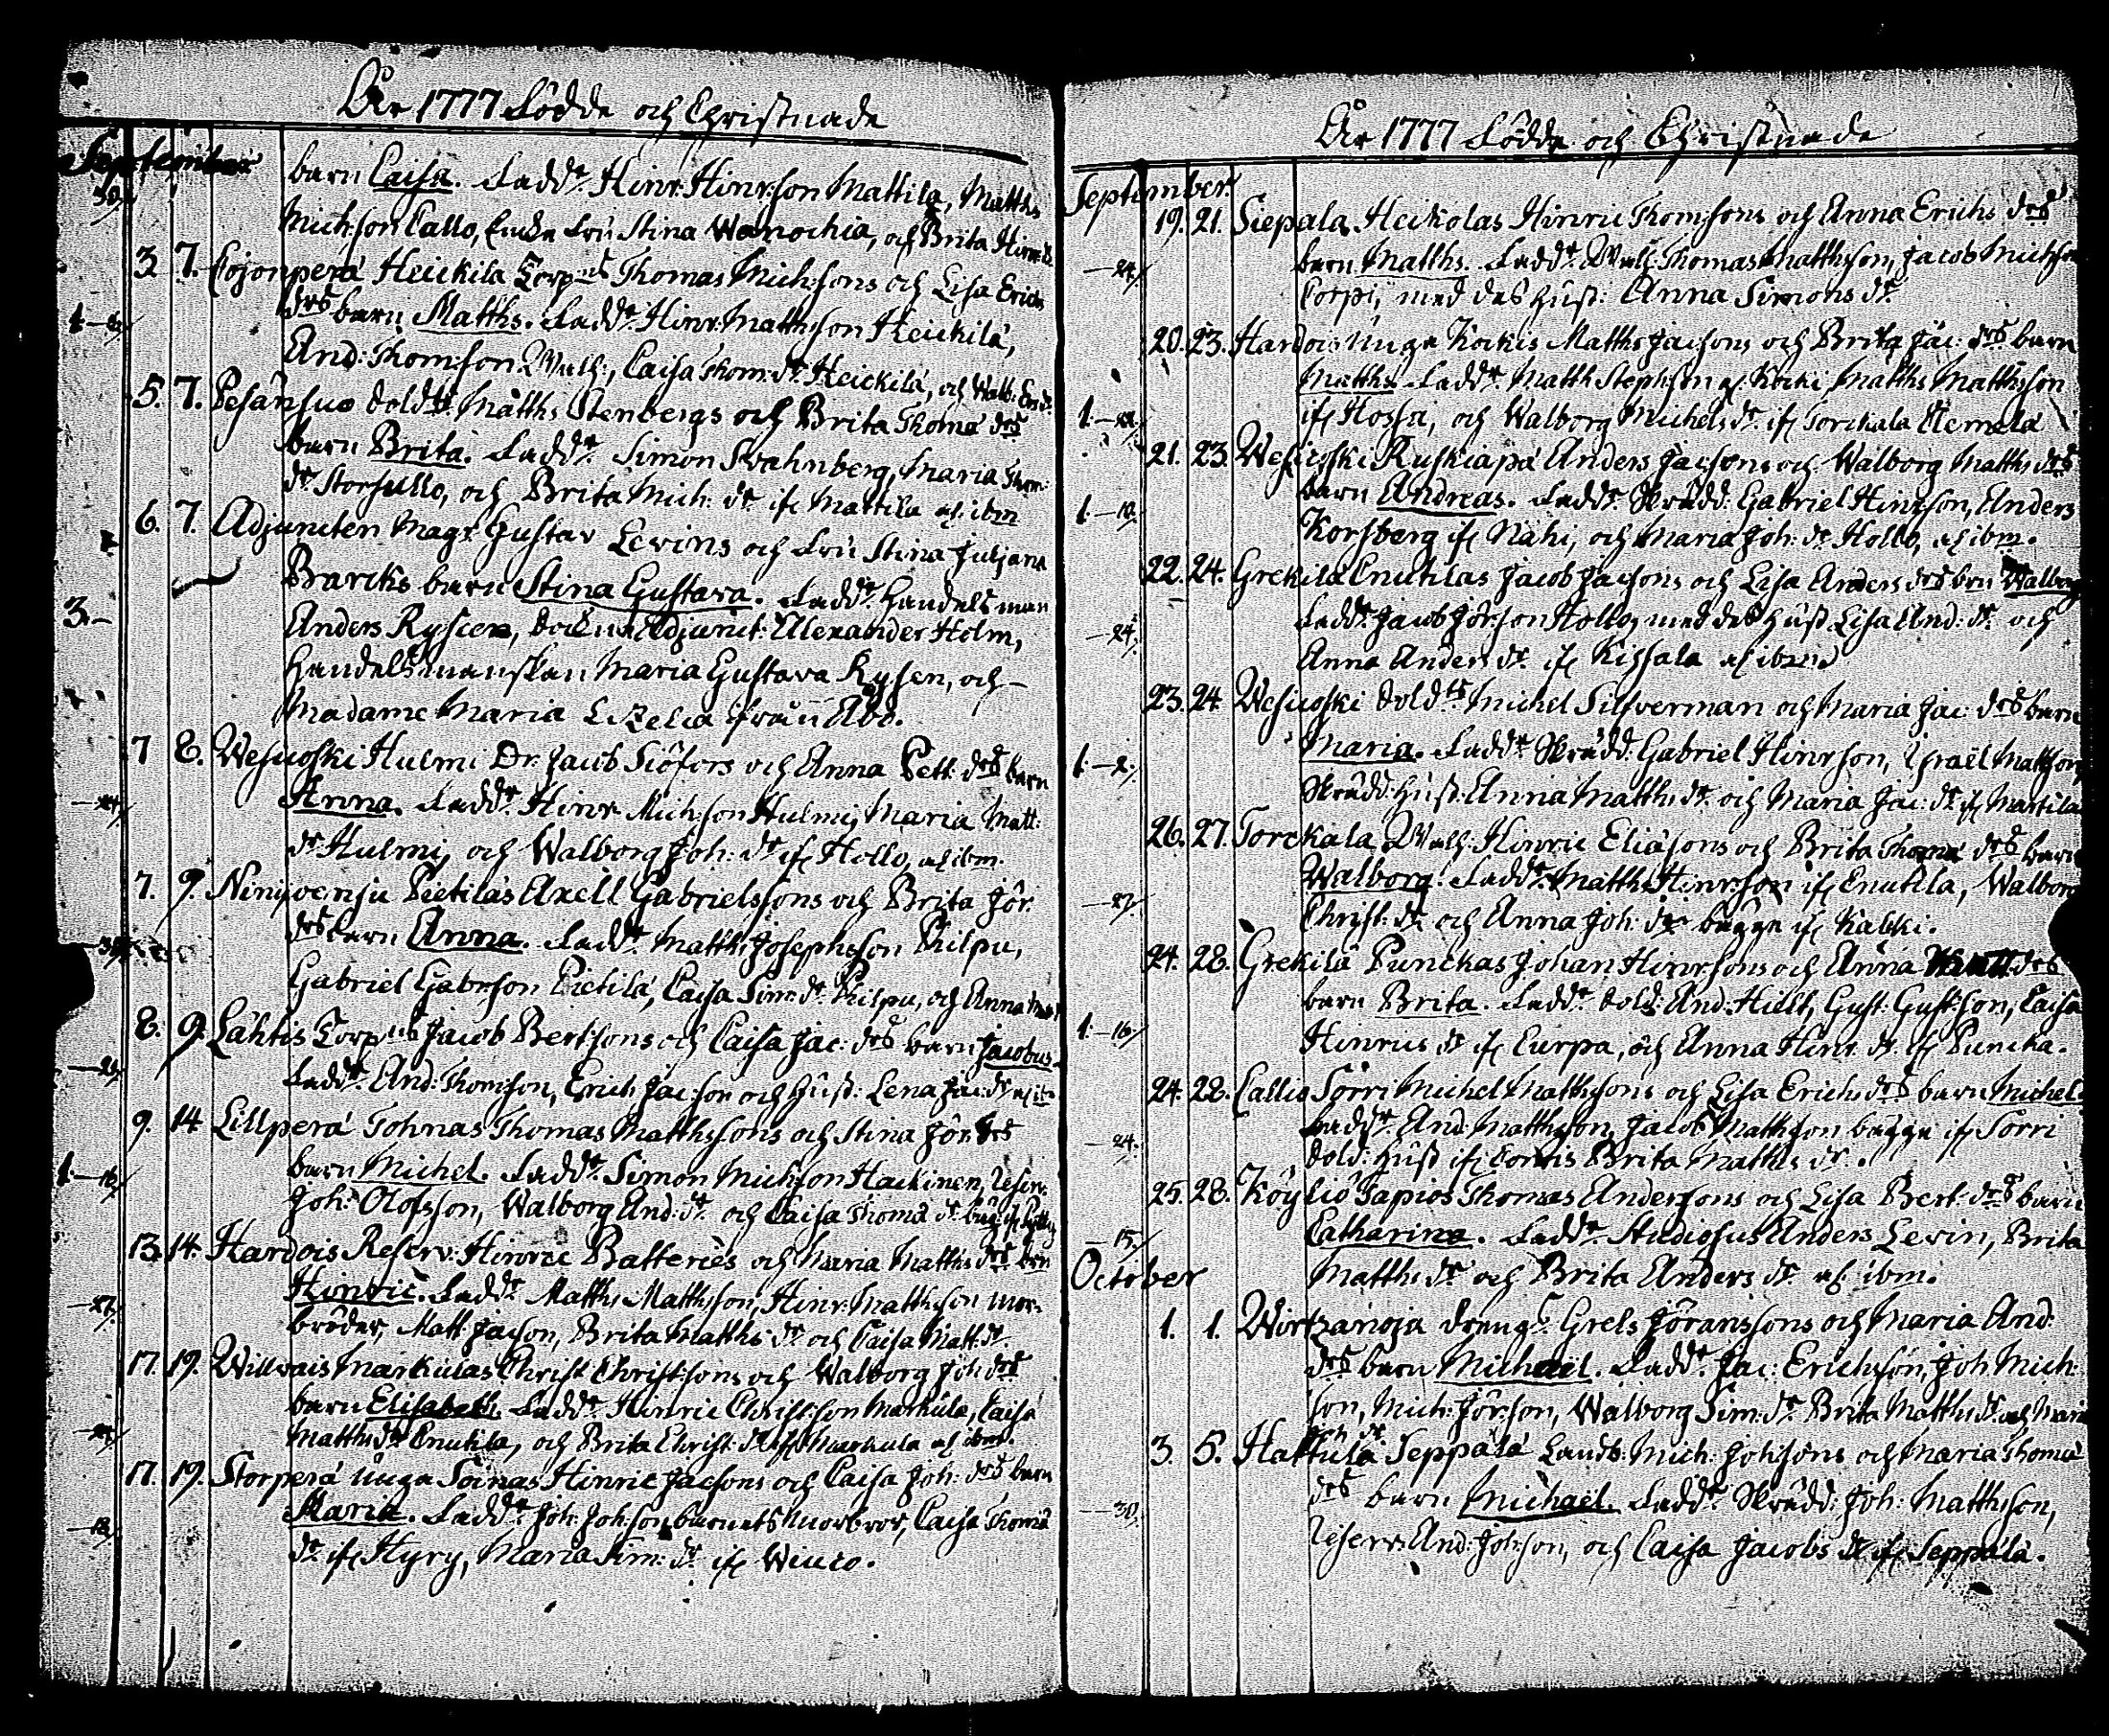 År 1777 Födde och Christnade
September
barn Caisa. Fadd:r Hinr: Hinr:son Mattila, Matths
30.
Mich:son Callo, Enka Fru Stina Wanochia, och Brita Hinr:
3. 7. Cojonperä Heickilä Torp:ns Thomas Mich:sons och Lisa Erichs
d:rs barn Matths. Fadd:r Hinr: Matthsson Heickilä,
And: Thom:son Wall:, Caisa Thom: d:r Heickilä, och Walb: Er: d:r
5. 7. Pesänsuo Sold:ts Matths Stenbergs och Brita Thomæ d:rs
barn Brita. Fadd:r Simon Svahnberg, Maria Thom:
d:r Storsullo, och Brita Mich: d:r ifr Mattila af ibm
6. 7. Adjuncten Mag:r Gustav Levins och Fru Stina Juljana
Barcks barn Stina Gustava. Fadd:r Handelsman
3.
Anders Rysten, Docens Adjunct: Alexander Holm,
Handelsmanskan Maria Gustava Rysen, och
Madame Maria Lizelia ifrån Åbo.
7 8. Wesucoski Hulmi Dr: Jacob Siöfors och Anna Pett: d:rs barn
24.
Anna. Fadd:r Hinr Mich:son Hulmi, Maria Matt:
d:r Hulmi, och Walborg Joh: d:r ifr Hollo, af ibm.
7. 9. Ninijoensu Pietiläs Axell Gabrielssons och Brita Jör:
d:rs barn Anna. Fadd:r Matth: Josephsson Philpu,
Gabriel Gabr:son Pietilä, Caisa Sim: d:r Philpu, och Anna
8. 9. Lähtis Torp:ns Jacob Bert:sons och Caisa Jac: d:rs barn Jacobus.
Fadd:r And: Thom:son, Erich Jac:son och Hust: Lena Jac: d:r af ibm
9. 14 Lillperä Tohnas Thomas Matthssons och Stina Jör: d:rs
1.—16.
barn Michel. Fadd:r Simon Mich:son Hackinen, Reserv:
Joh: Olofsson, Walborg And: d:r och Caisa Thomæ d:r
13. 14. Hardois Reserv: Hinric Batteriès och Maria Matths d:rs brn
27.
Hinric. Fadd:r Matths Matthsson, Hinr: Matthson mor-
broder, Matt: Jacson, Brita Matths d:r och Caisa Matt: d:r
17. 19. Willvais Markulas Christ: Christ:sons och Walborg Joh: d:rs
barn Elisabeth. Fadd:r Hinric Christ:son Markula, Caisa
Matths d:r Cnutila, och Brita Christ: d:r ifr Markula af ibm.
17. 19. Storperä unga Soinas Hinric Jacsons och Caisa Joh: d:rs barn
18.
Maria. Fadd:r Joh: Joh:son barnets morbror, Caisa Thomæ
d:r ifr Hyry, Maria Sim: d:r ifr Wiuco.
År 1777 Födde och Christnade
September
19. 21. Siepala Heikolas Hinric Thomsons och Anna Erichs d:rs
24.
barn Matths. Fadd:r Wall: Thomas Matthsson, Jacob Michson
Corpi, med des hust: Anna Simons d:r
20. 23. Hardois unga Kockis Matths Jacsons och Brita Jac: d:rs barn
Matths. Fadd:r Matth Stephson af Kocki, Matths Matthsson
ifr Hossa, och Walborg Michels d:r ifr Torckala Hemela
21. 23. Wesucoski Ruskiapä Anders Jacsons och Walborg Matths d:rs
1.—10.
barn Andreas. Fadd:r Skrädd: Gabriel Hinrson, Anders
Korsberg ifr Nahi, och Maria Joh: d:r Hollo, af ibm.
22. 24. Grekilä Cnutilas Jacob Jacsons och Lisa Anders d:rs brn Walborg
24.
Fadd:r Jacob Jör:son Hollo, med des hust Lisa And: d:r och
Anna Anders d:r ifr Kissala af ibm
23. 24. Wesucoski Sold:ts Michel Silfverman och Maria Jac: d:rs barn
1.—2.
Maria. Fadd:r Skrädd: Gabriel Hinrson, Israël Mattson,
Skrädd: hust: Anna Matths d:r och Maria Jac: d:r ifr Martila
26. 27. Torckala Wall: Hinric Eliæsons och Brita Thomæ d:rs barn
27.
Walborg. Fadd:r Matths Hinr:son ifr Cnutila, Walborg
Christ: d:r och Anna Joh: d:r bägge ifr Kalcki.
24. 28. Grekilä Punckas Johan Hinr:sons och Anna Matt: d:rs
1.—16.
barn Brita. Fadd:r Sold: And: Hillt, Gust: Gust:son, Caisa
Hinrics d:r ifr Eurpa, och Anna Hinr: d:r ifr Puncka.
24. 28. Callis Sorri Michel Matthssons och Lisa Erichs d:rs barn Michel.
24.
Fadd:r And: Matthsson, Jacob Matthson bägge ifr Sorri
Sold: hust ifr Corvis Brita Matths d:r.
25. 28. Köyliö Tapios Thomas Anderssons och Lisa Bert: d:rs barn
15.
Catharina. Fadd:r Studiosus Anders Levin, Brita
October
Matths d:r och Brita Anders d:r af ibm.
1. 1. Wirtzanoja drengs Grels Jöranssons och Maria And:
d:rs barn Michaël. Fadd:r Jac: Erichsson, Joh: Mich:
son, Mich: Jör:son, Walborg Sim: d:r Brita Matths d:r och Maria
Joh: d:r
3. 5. Hattula Seppälä Landb: Mich: Joh:sons och Maria Thomæ
30.
d:rs barn Michaël. Fadd:r Skrädd: Joh: Matthsson,
Reserv: And: Joh:son, och Caisa Jacobs d:r ifr Seppälä.